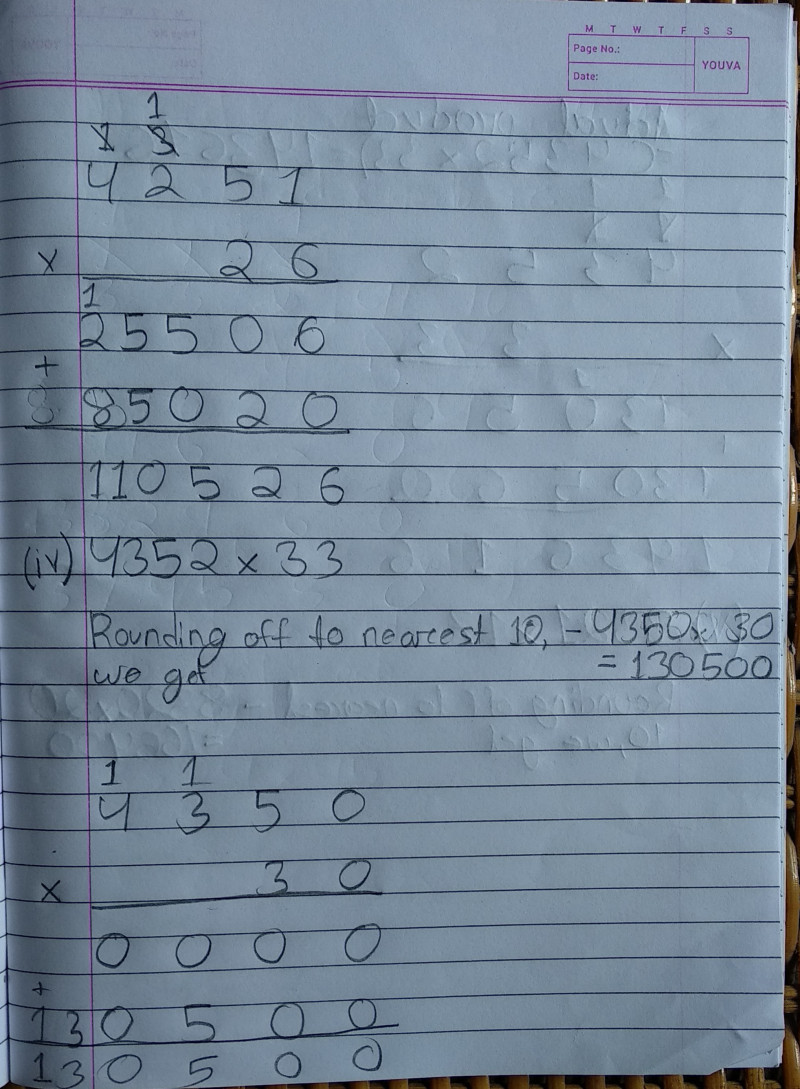 M T W T F S S
Page No.:
YOUVA
Date:
1
1 3
4 2 5 1
x 2 6
1
2 5 5 0 6
+
8 5 0 2 0
1 1 0 5 2 6
(iv) 4352 x 33
Rounding off to nearest 10, - 4350 x 30
we get = 130500
1 1
4 3 5 0
x 3 0
0 0 0 0
+
1 3 0 5 0 0
1 3 0 5 0 0